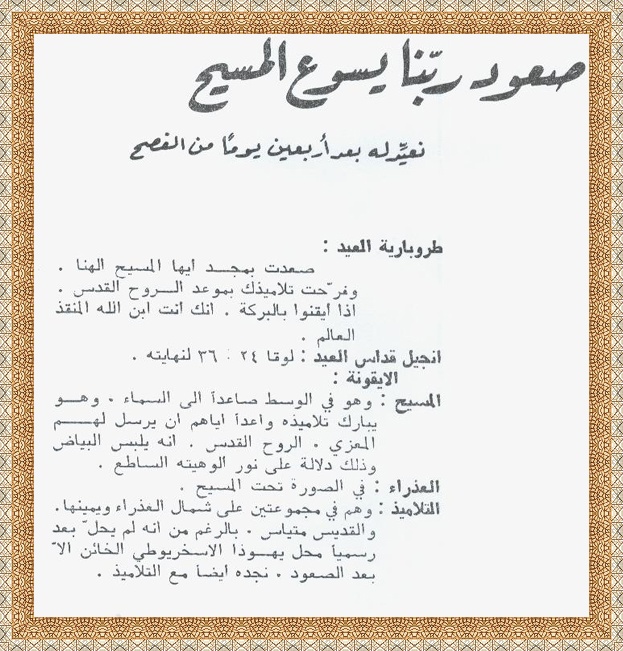 صعود ربّنا يسوع المسيح
نعيّد له بعد أربعين يومًا من الفصح
طروبارية العيد :
صعدت بمجد ايها المسيح الهنا .
وفرّحت تلاميذك بموعد الروح القدس .
اذا ايقنوا بالبركة . انك انت ابن الله المنقذ
العالم .
انجيل قداس العيد : لوقا ٢٤ : ٣٦ لنهايته .
الايقونة :
المسيح : وهو في الوسط صاعداً الى السماء . وهو
يبارك تلاميذه واعداً اياهم ان يرسل لهم
المعزي . الروح القدس . انه يلبس البياض
وذلك دلالة على نور الوهيته الساطع .
العذراء : في الصورة تحت المسيح .
التلاميذ : وهم في مجموعتين على شمال العذراء ويمينها.
والقديس متياس . بالرغم من انه لم يحلّ بعد
رسمياً محل يهوذا الاسخريوطي الخائن الاّ
بعد الصعود . نجده ايضاً مع التلاميذ .